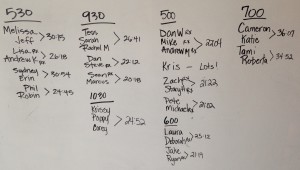 530
Melissa
Jeff > 30:15
Lisa RX
Andrew K RX > 26:18
Sydney
Erin > 30:54
Phil
Robin > 24:45
930
Tess
Sarah
Rachel M > 26:41
Dan
Steve RX > 22:12
Sean RX
Marcus > 20:18
1030
Krissy
Poppy
Corey > 24:52
500
Dan W RX
Mike RX
Andrew M RX > 27:04
Kris - Lots!
Zach RX
> 21:22
Pete
Michael > 21:02
600
Laura
Deborah > 25:12
Jake
> 21:19
700
Cameron
Katie > 26:07
Tami
Roberta > 34:52